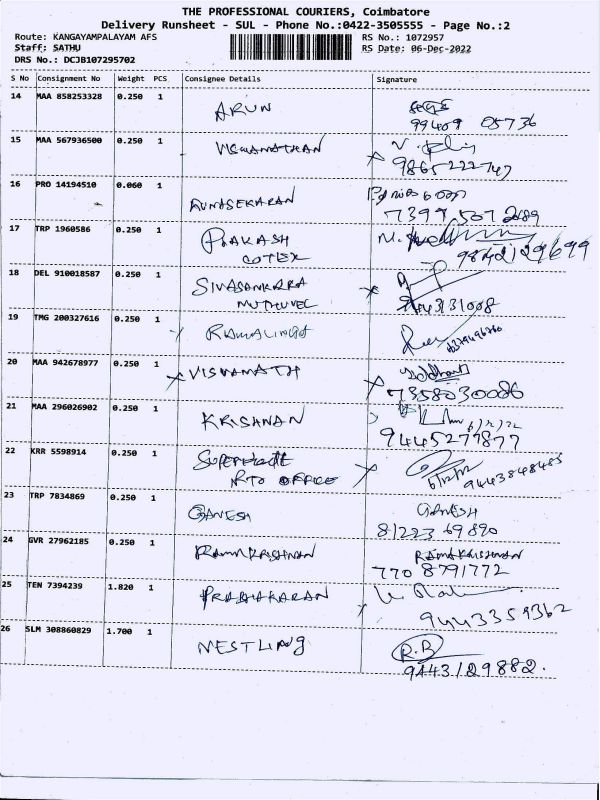 THE PROFESSIONAL COURIERS, Coimbatore
Delivery Runsheet - SUL - Phone No.:0422-3505555 - Page No.:2
Route: KANGAYAMPALAYAM AFS RS No.: 1072957
Staff: SATHU RS Date: 06-Dec-2022
DRS No.: DCJB107295702
S No Consignment No Weight PCS Consignee Details Signature
14 MAA 858253328 0.250 1 ARUN
99409 05736
15 MAA 567936500 0.250 1 VISWANATHAN
9865222747
16 PRO 14194510 0.060 1 GUNASEKARAN
7399 507 2089
17 TRP 1960586 0.250 1 PRAKASH
COTEX 9842129699
18 DEL 910018587 0.250 1 SIVASANKARA
MUTHUVEL 9443131008
19 TMG 200327616 0.250 1 RAMALINGA
20 MAA 942678977 0.250 1 VISVANATH
7358030086
21 MAA 296026902 0.250 1 KRISHNAN 6/12/22
9445277877
22 KRR 5598914 0.250 1
RTO OFFICE 6/12/22 9443848485
23 TRP 7834869 0.250 1 GANESH GANESH
81223 69890
24 GVR 27962185 0.250 1 RAMAKRISHNAN RAMAKRISHNAN
770 8791772
25 TEN 7394239 1.820 1 PRABHAKARAN
9443359362
26 SLM 308860829 1.700 1 NESTLING R.B
9443129882.